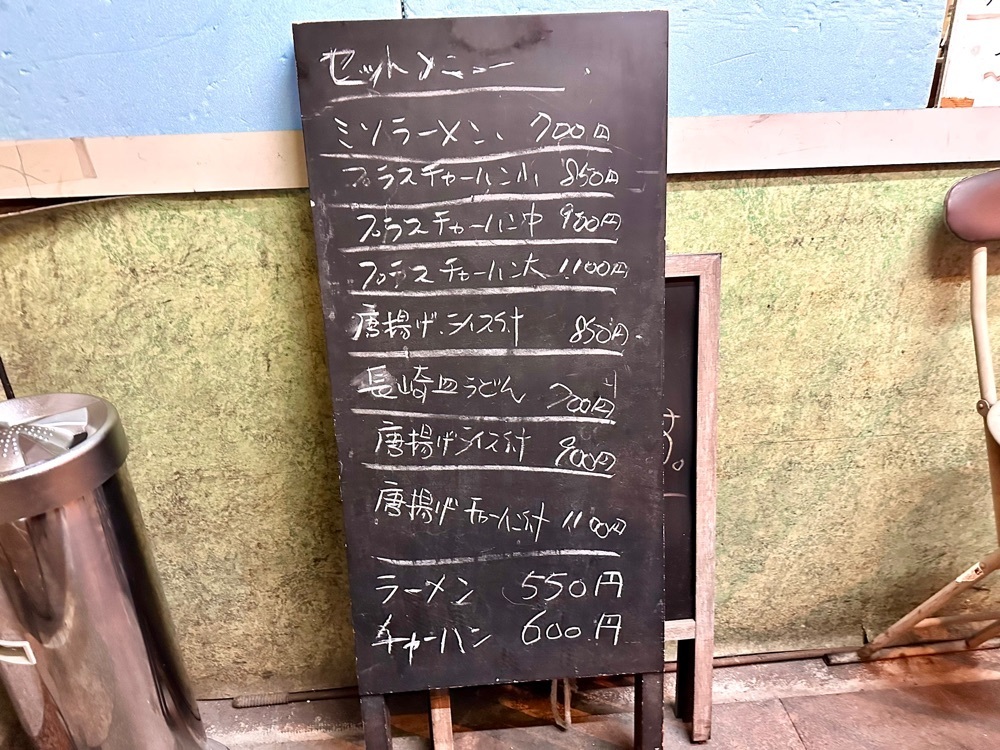 セットメニュー
ミソラーメン 700円
プラスチャーハン小 850円
プラスチャーハン中 900円
プラスチャーハン大 1100円
唐揚げ.ライス付 850円
長崎皿うどん 700円
唐揚げライス付 900円
唐揚げチャーハン付 1100円
ラーメン 550円
チャーハン 600円
す。